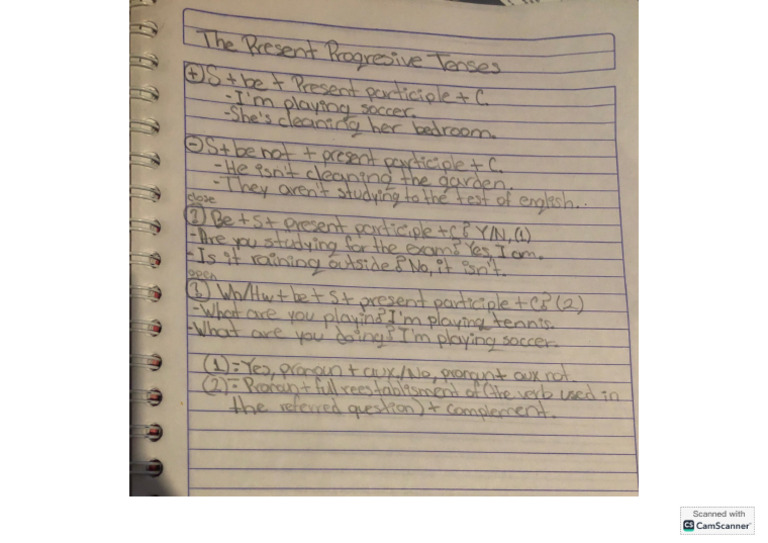 The Present Progresive Tenses
(+) S + be + Present participle + C.
- I'm playing soccer.
- She's cleaning her bedroom.
(-) S + be not + present participle + C.
- He isn't cleaning the garden.
- They aren't studying to the test of english..
close
(?) Be + S + present participle + C? Y/N, (1)
- Are you studying for the exam? Yes, I am.
- Is it raining outside? No, it isn't.
open
(?) Wh/Hw + be + S + present participle + C? (2)
- What are you playin? I'm playing tennis.
- What are you doing? I'm playing soccer.
(1) = Yes, pronoun + aux/No, pronoun + aux not.
(2) = Pronoun + full reestablisment of (the verb used in
the referred question) + complement.
Scanned with
CS CamScanner